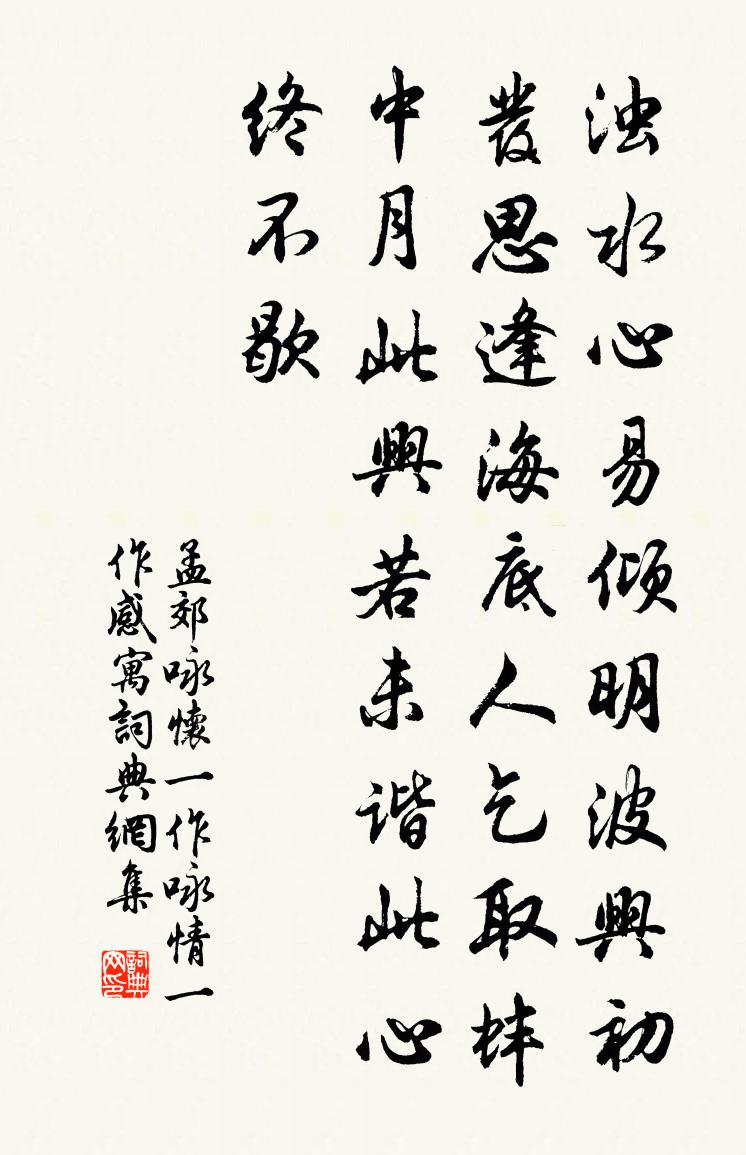 浊水心易倾明波興初
發思逢海底人乞取蚌
中月此興若未谐此心
終不歇
孟郊咏懷一作咏情一
作感寓詞典網集
詞典网印